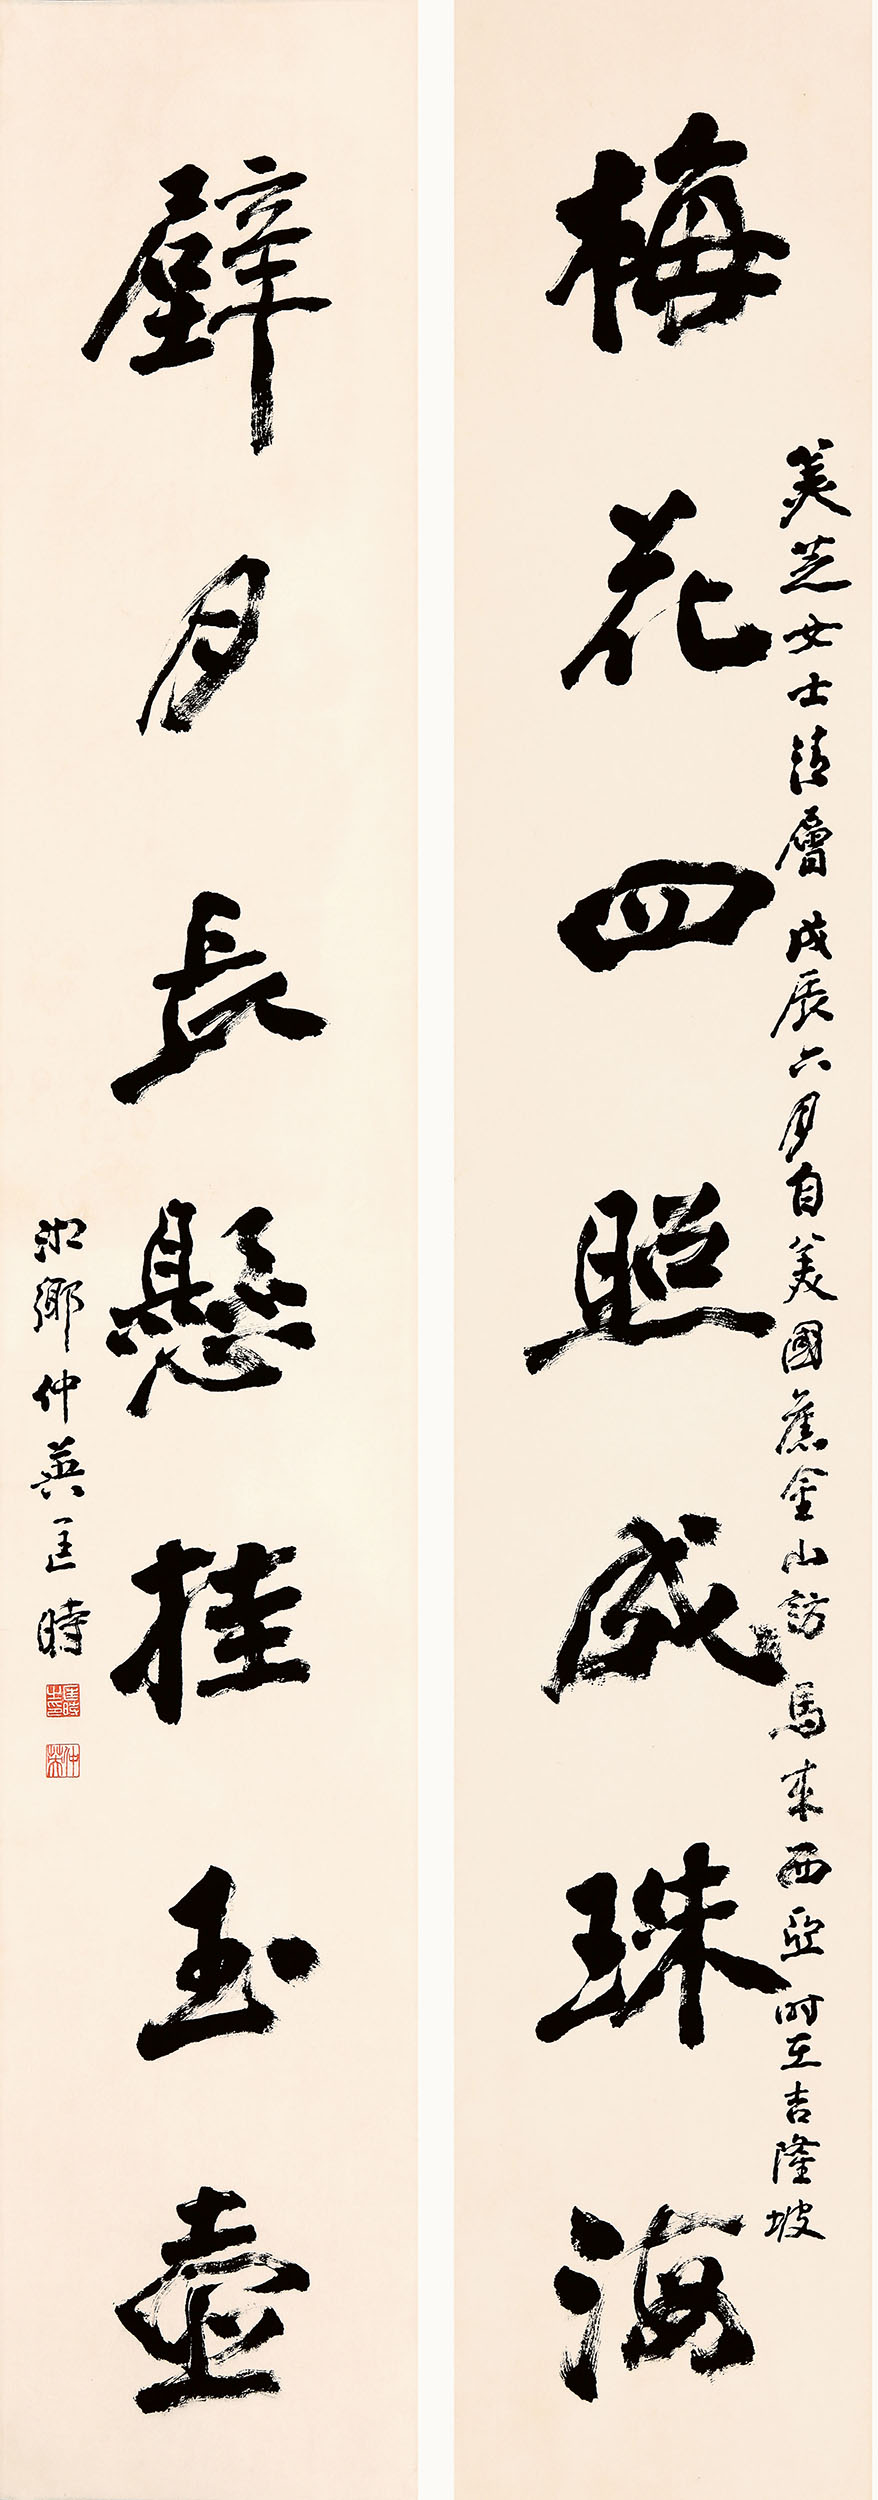 美芝女士清屬 戊辰六月自美國舊金山訪馬來西亞時在吉隆坡
梅花四照成珠海
璧月長懸挂玉壺
湘鄉仲英匡時
仲英